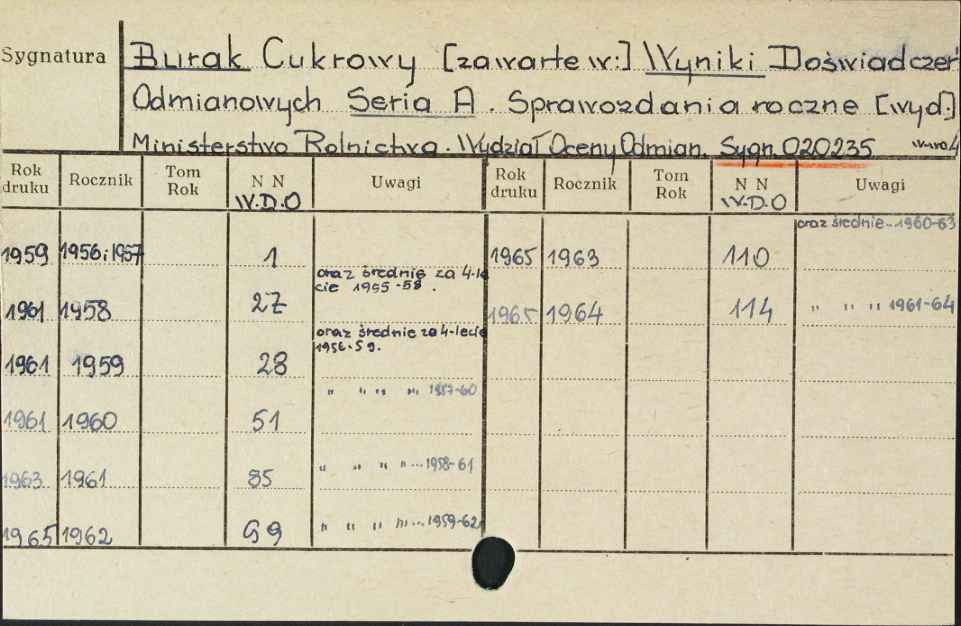 Sygnatura
Burak Cukrowy [zawarte w:] Wyniki Doświadczeń
Odmianowych Seria A. Sprawozdania roczne [wyd.]
Ministerstwo Rolnictwa. Wydział Oceny Odmian. Sygn. 020235
Rok druku Rocznik Tom Rok N N W.D.O Uwagi Rok druku Rocznik Tom Rok N N W.D.O Uwagi
1959 1956 i 1957 1
1961 1958 27 oraz średnie za 4-lecie 1955-58.
1961 1959 28 oraz średnie za 4-lecie 1956-59.
1961 1960 51 " " " " 1957-60
1963 1961 85 " " " " ... 1958-61
1965 1962 99 " " " " ... 1959-62
1965 1963 110 oraz średnie .. 1960-63
1965 1964 114 " " " 1961-64